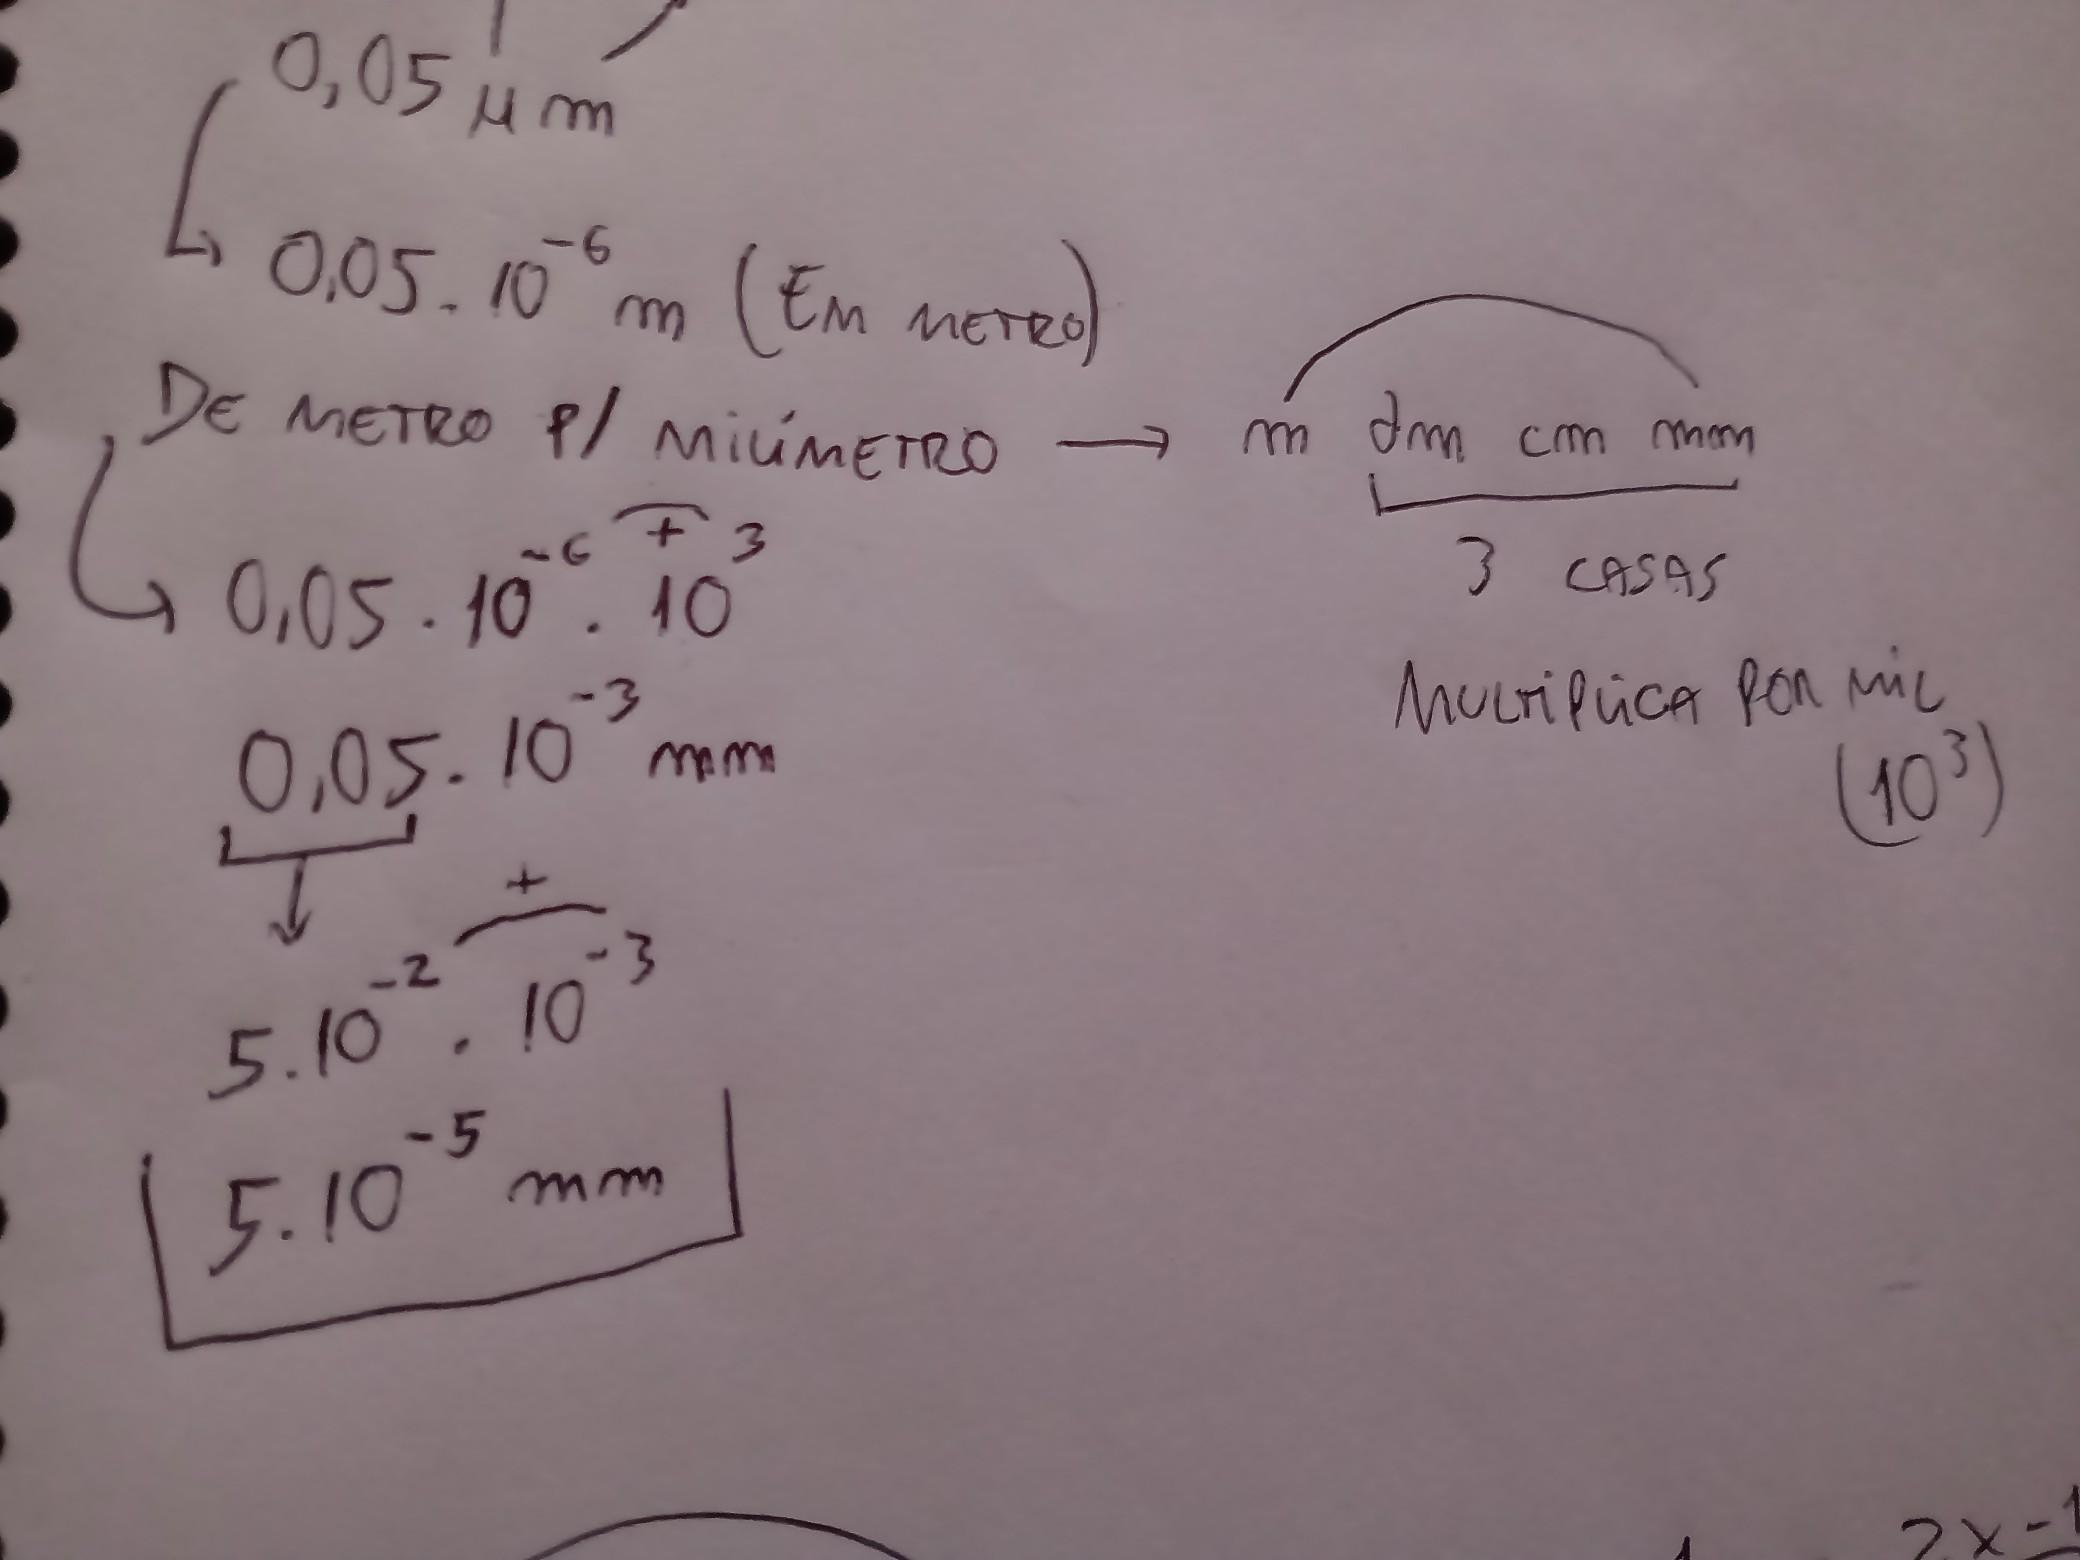 0,05 μm
0,05 . 10⁻⁶ m (Em METRO)
DE METRO P/ MILÍMETRO → m dm cm mm
3 CASAS
+
0,05 . 10⁻⁶ . 10³
MULTIPLICA POR MIL
0,05 . 10⁻³ mm
(10³)
+
5 . 10⁻² . 10⁻³
5 . 10⁻⁵ mm
2x-1